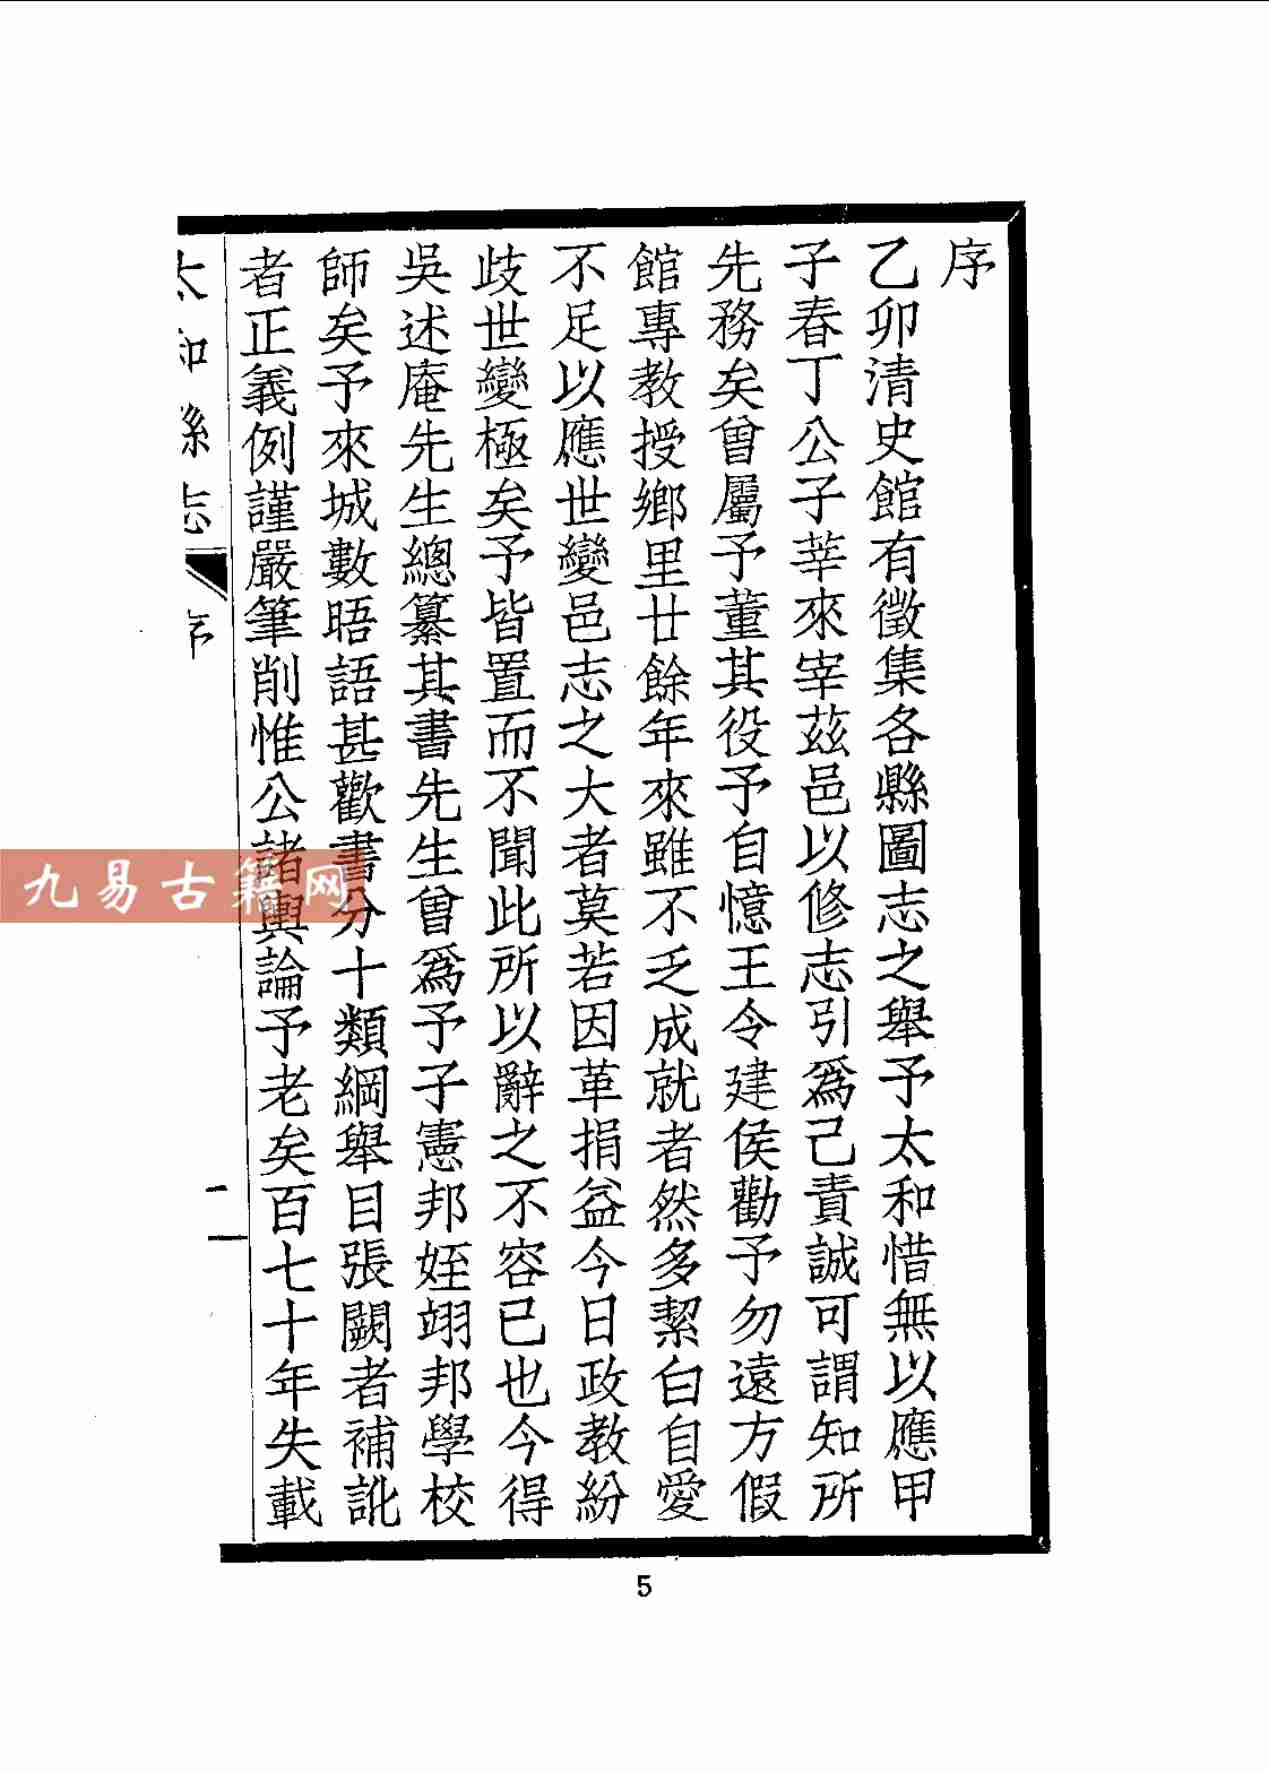 序
乙卯清史館有徵集各縣圖志之舉予太和惜無以應甲
子春丁公子莘來宰茲邑以修志引爲己責誠可謂知所
先務矣曾屬予董其役予自憶王令建侯勸予勿遠方假
館專教授鄉里廿餘年來雖不乏成就者然多潔白自愛
不足以應世變邑志之大者莫若因革捐益今日政教紛
歧世變極矣予皆置而不聞此所以辭之不容已也今得
吳述庵先生總纂其書先生曾爲予子憲邦姪翊邦學校
師矣予來城數晤語甚歡書分十類綱舉目張闕者補訛
者正義例謹嚴筆削惟公諸輿論予老矣百七十年失載
太和縣志
序
一
九易古籍网
5